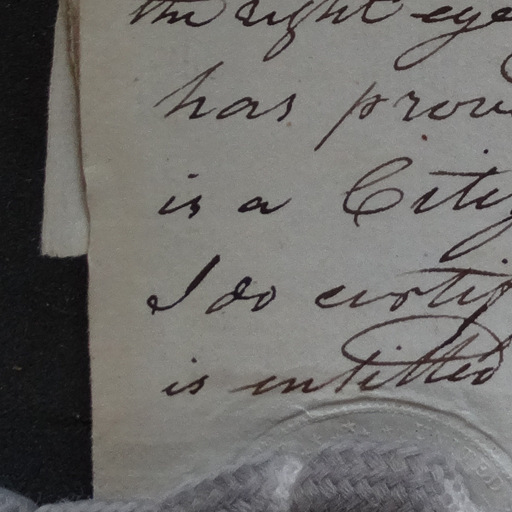 the right eye
has prov
is a Citiz
I do certif
is entitled